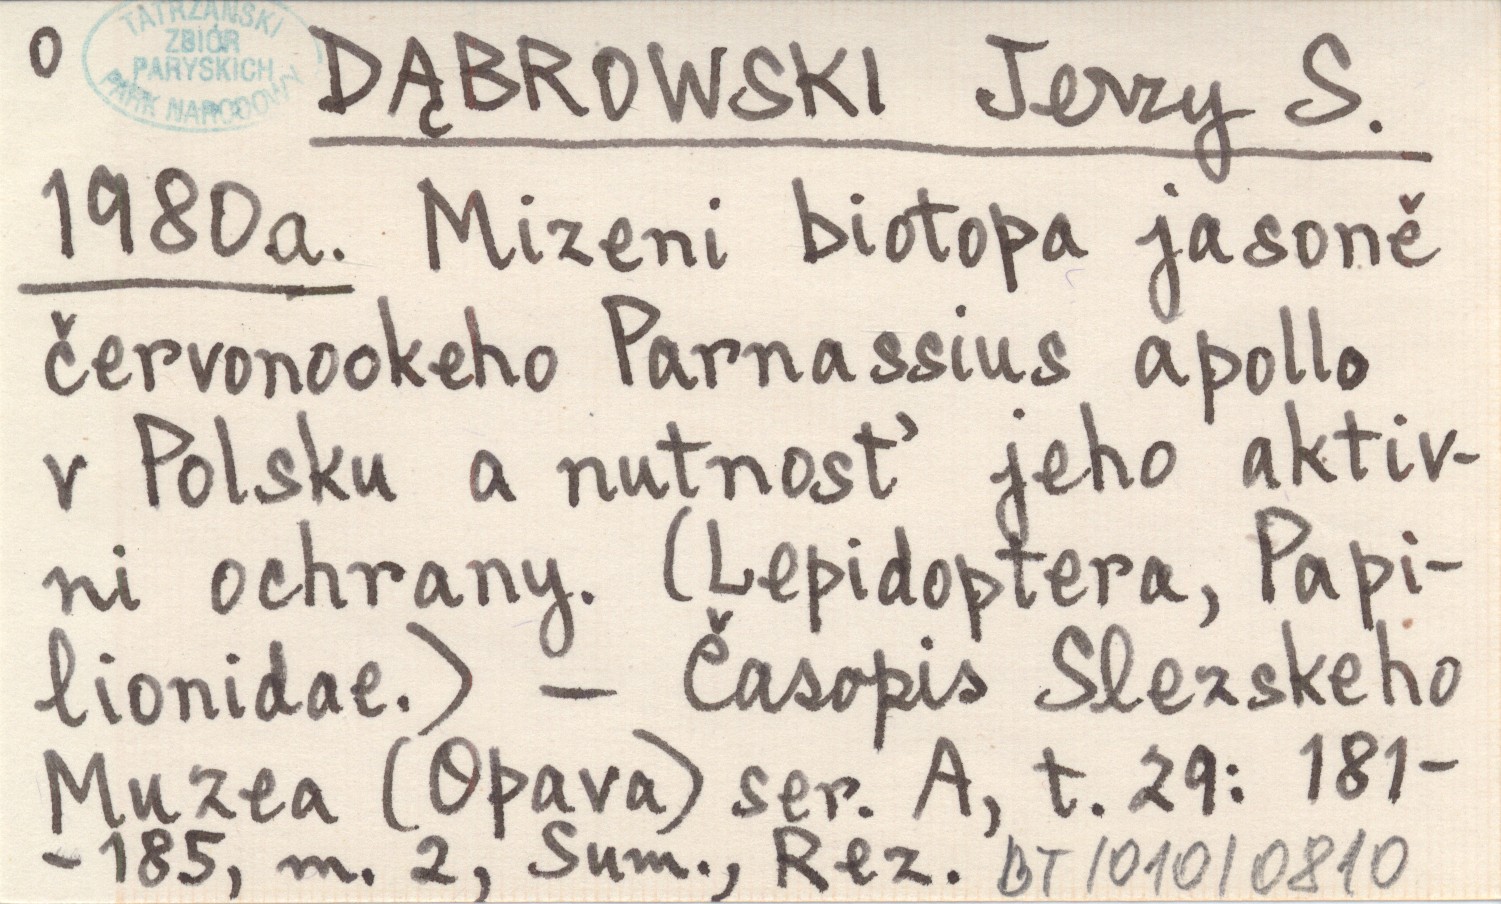 O
TATRZAŃSKI
ZBIÓR
PARYSKICH
PARK NARODOWY
DĄBROWSKI Jerzy S.
1980a. Mizeni biotopa jasoně
červonookeho Parnassius apollo
v Polsku a nutnosť jeho aktiv-
ni ochrany. (Lepidoptera, Papi-
lionidae.) — Časopis Slezskeho
Muzea (Opava) ser. A, t. 29: 181-
-185, m. 2, Sum., Rez. BT/010/0810